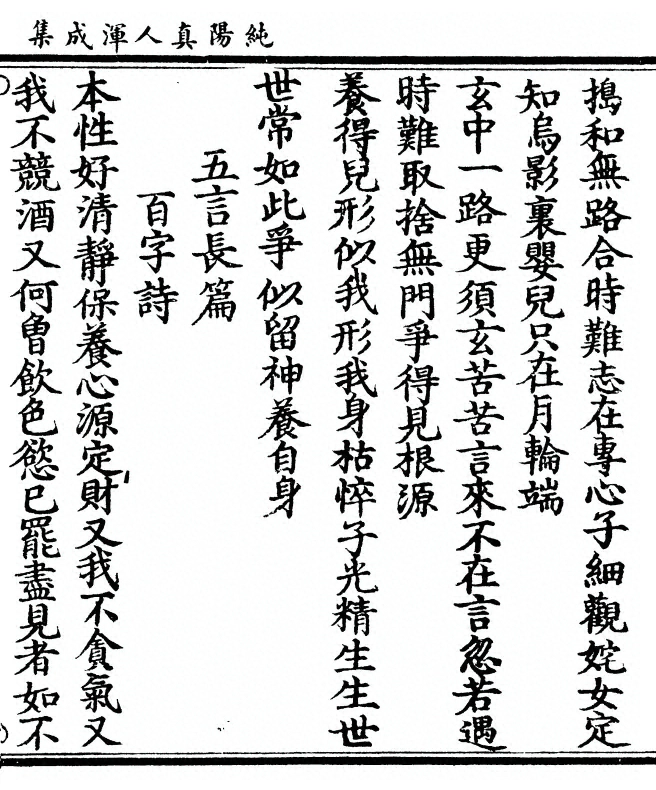 純陽真人渾成集
搗和無路合時難志在專心子細觀姹女定
知烏影裏嬰兒只在月輪端
玄中一路更須玄苦苦言來不在言忽若遇
時難取捨無門爭得見根源
養得兒形似我形我身枯悴子光精生生世
世常如此爭似留神養自身
五言長篇
百字詩
本性好清靜保養心源定財又我不貪氣又
我不競酒又何曾飲色慾已罷盡見者如不